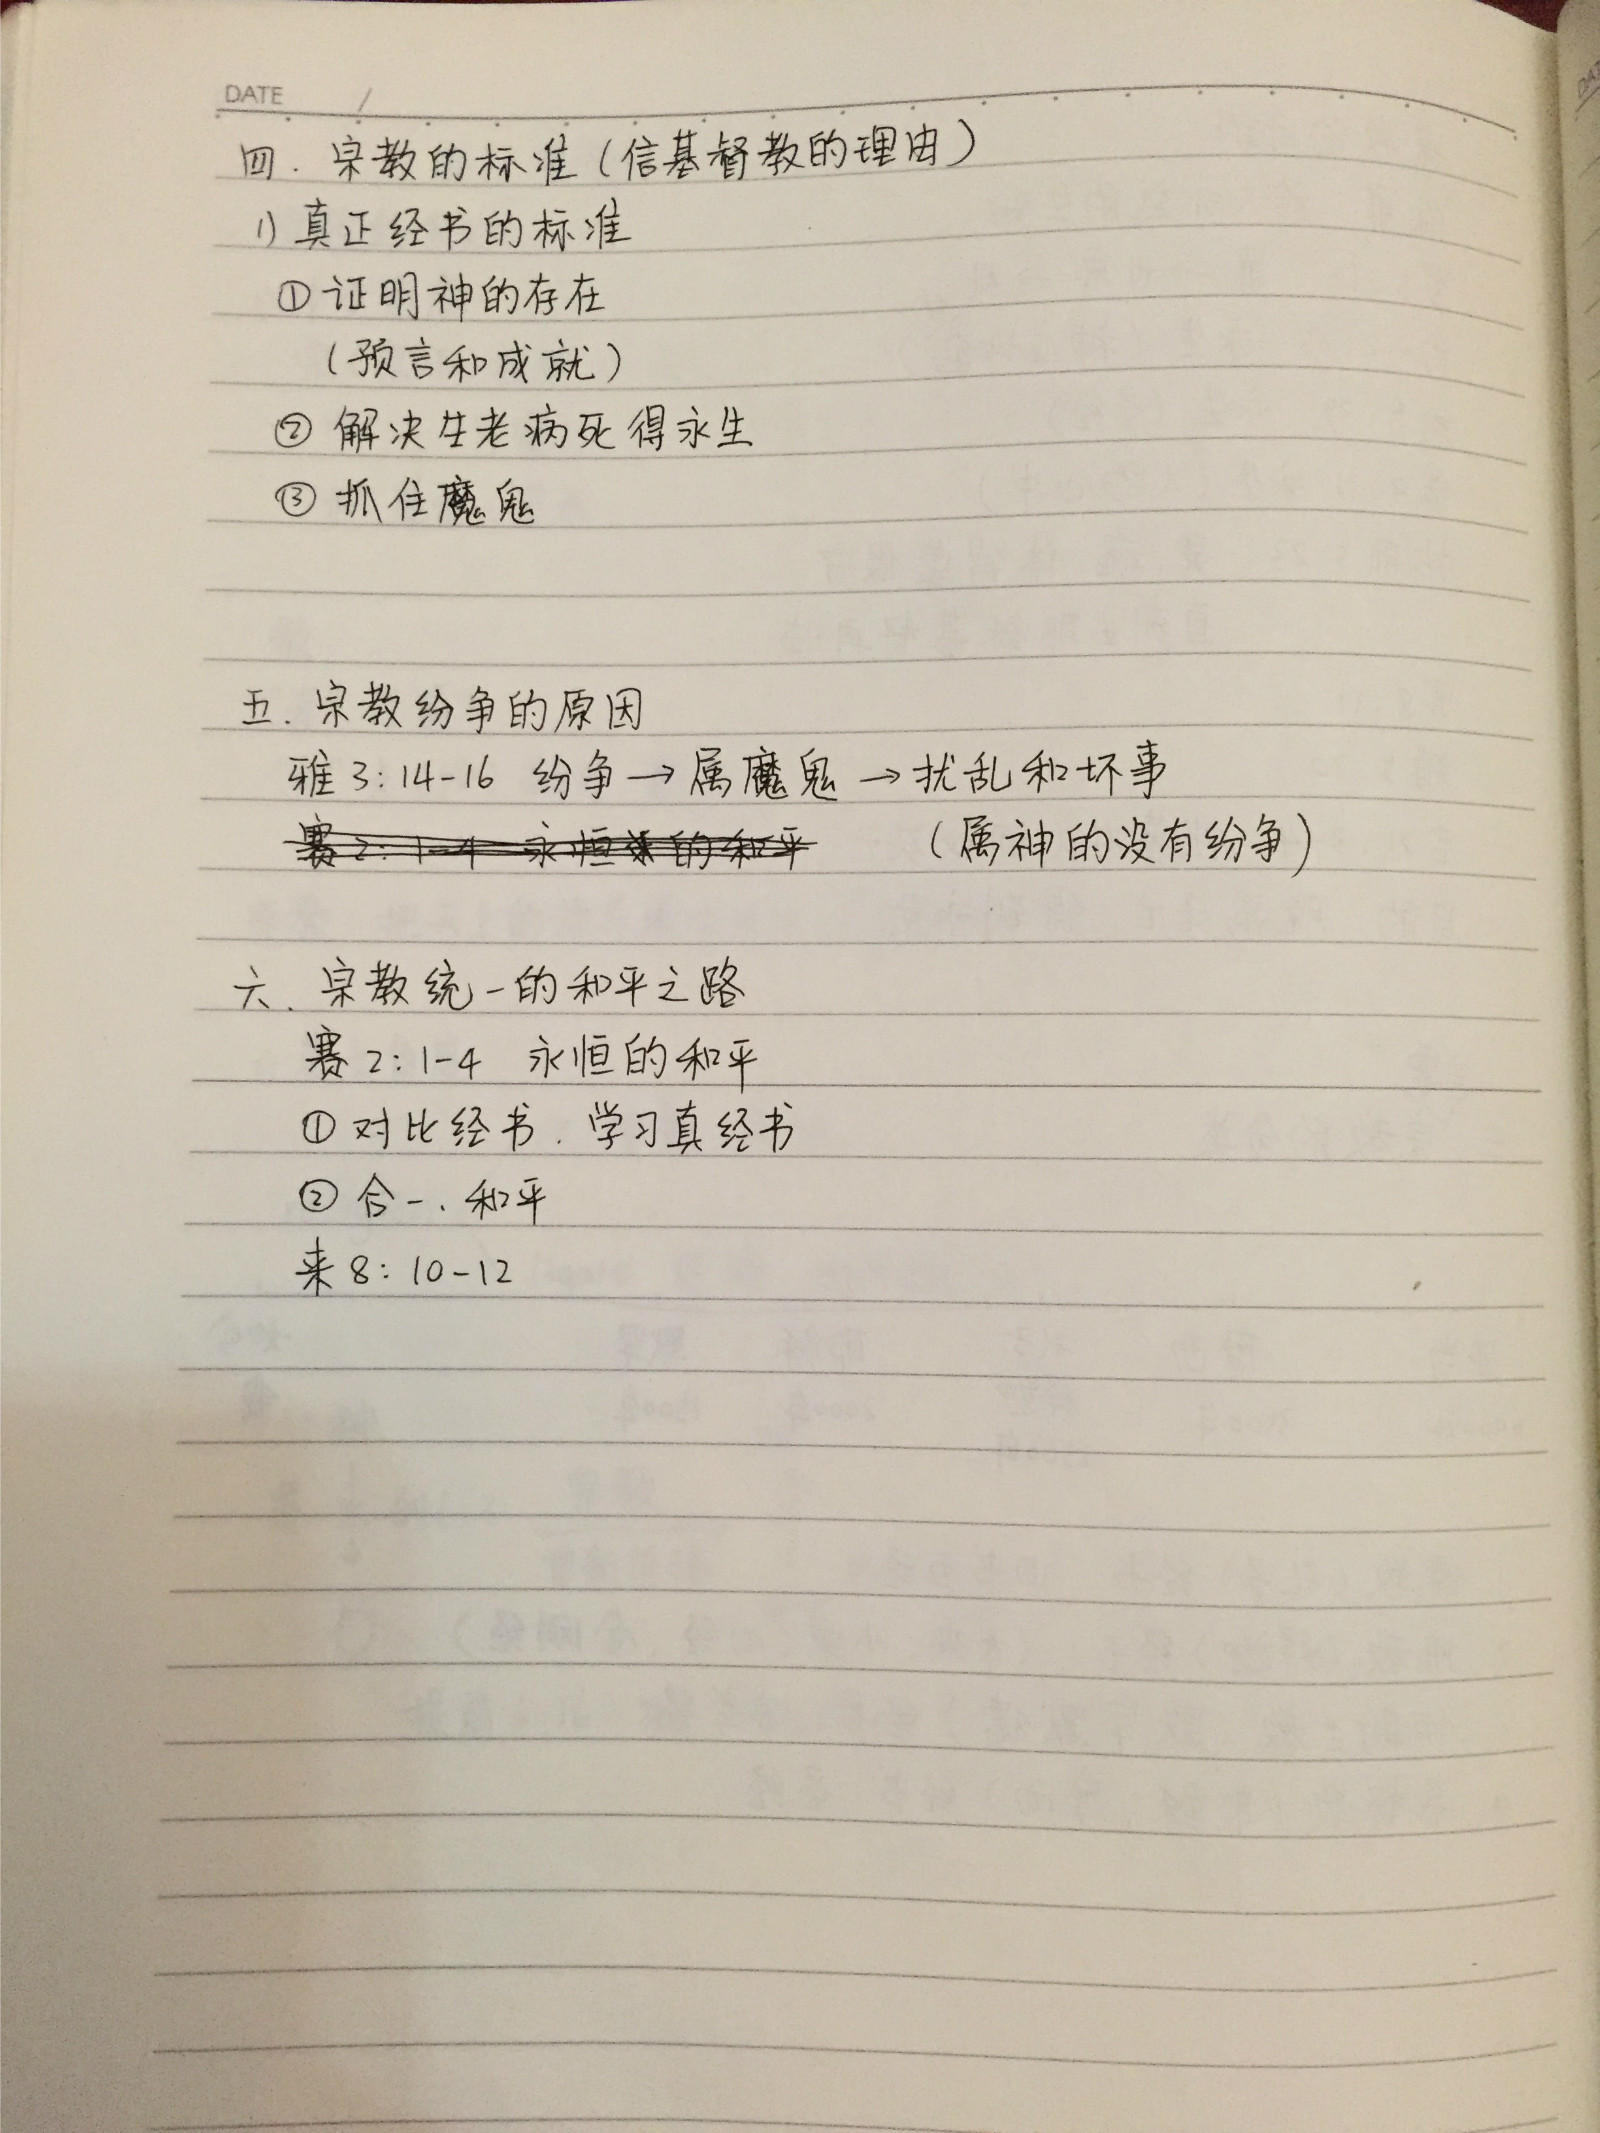 DATE /
四. 宗教的标准(信基督教的理由)
1) 真正经书的标准
① 证明神的存在
(预言和成就)
② 解决生老病死得永生
③ 抓住魔鬼
五. 宗教纷争的原因
雅3:14-16 纷争→属魔鬼→扰乱和坏事
赛2:1-4 永恒的和平 (属神的没有纷争)
六. 宗教统一的和平之路
赛2:1-4 永恒的和平
① 对比经书. 学习真经书
② 合一. 和平
来8:10-12